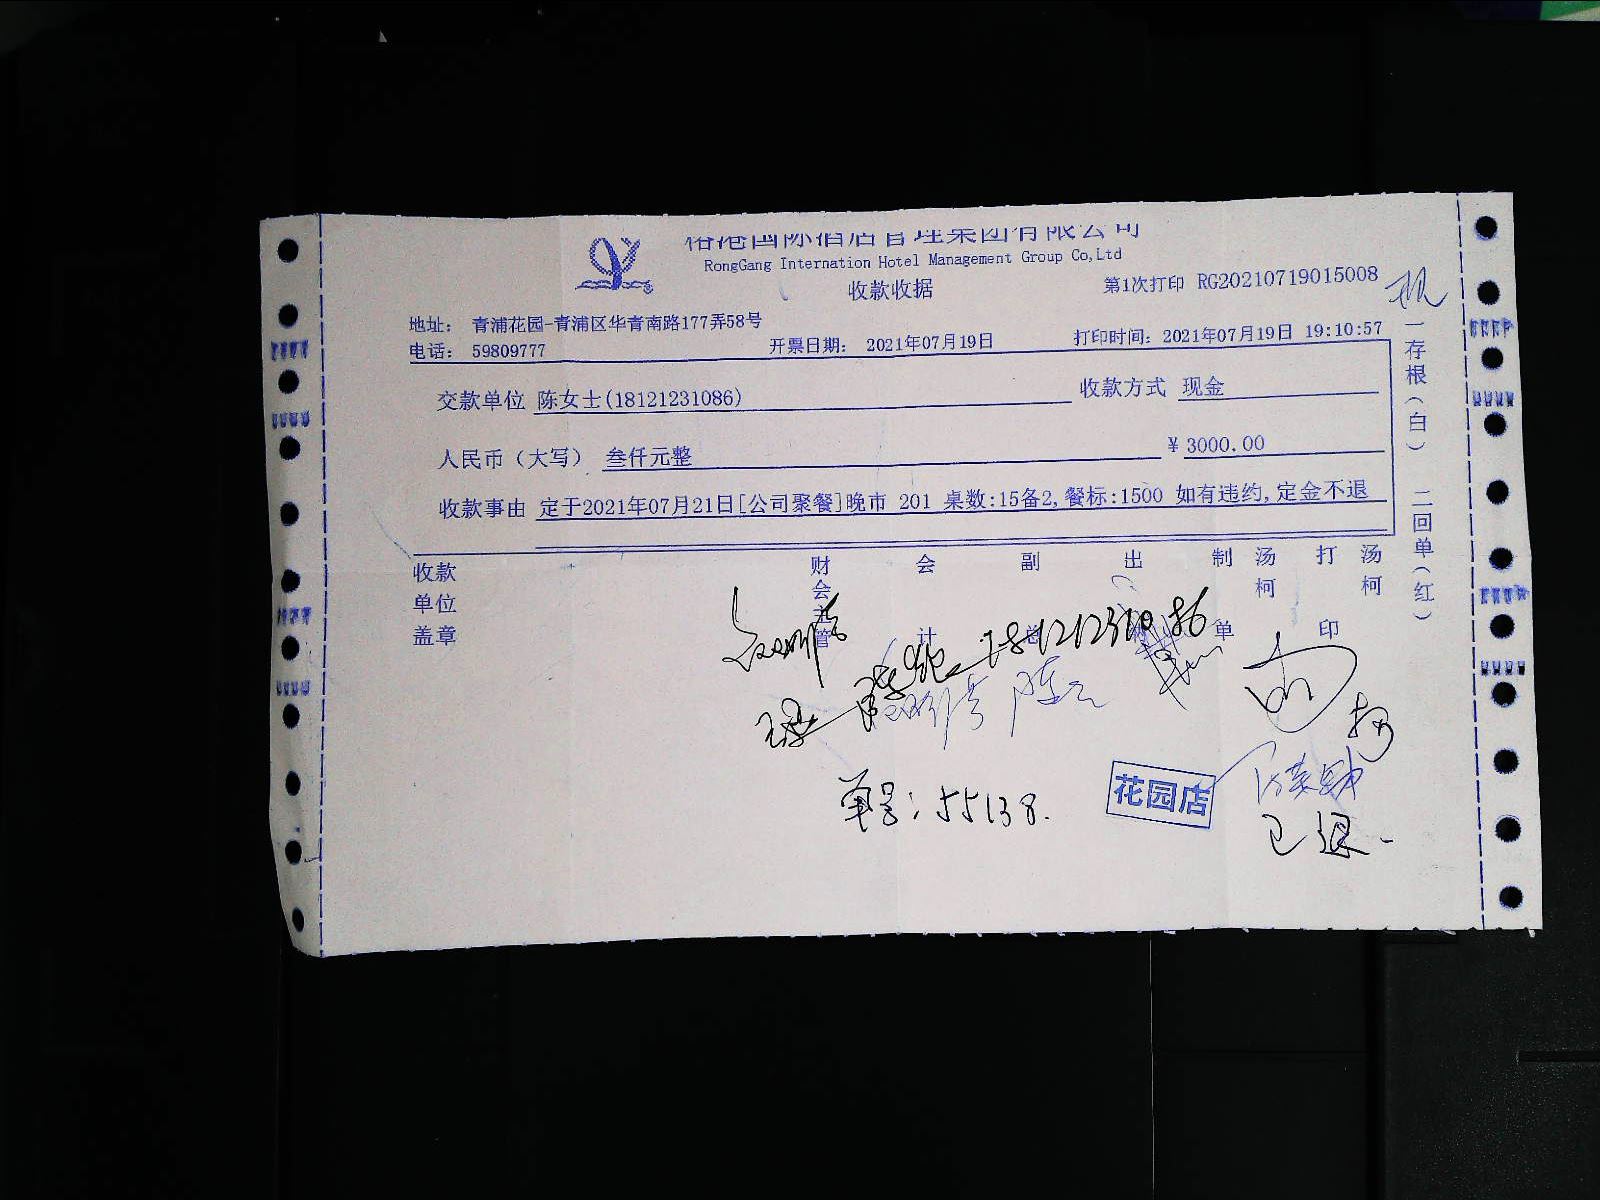 国际酒店管理集团有限公司
RongGang Internation Hotel Management Group Co,Ltd
收款收据
第1次打印 RG20210719015008
地址： 青浦花园-青浦区华青南路177弄58号
电话： 59809777
开票日期： 2021年07月19日
打印时间： 2021年07月19日 19:10:57
交款单位 陈女士(18121231086)
收款方式 现金
人民币（大写） 叁仟元整
¥ 3000.00
收款事由 定于2021年07月21日[公司聚餐]晚市 201 桌数:15备2,餐标:1500 如有违约,定金不退
一存根（白） 二回单（红）
收款单位盖章
财会主管
会计
副总
出纳
制单
汤柯
打印
汤柯
18121231086
单号：55138.
花园店
已退.